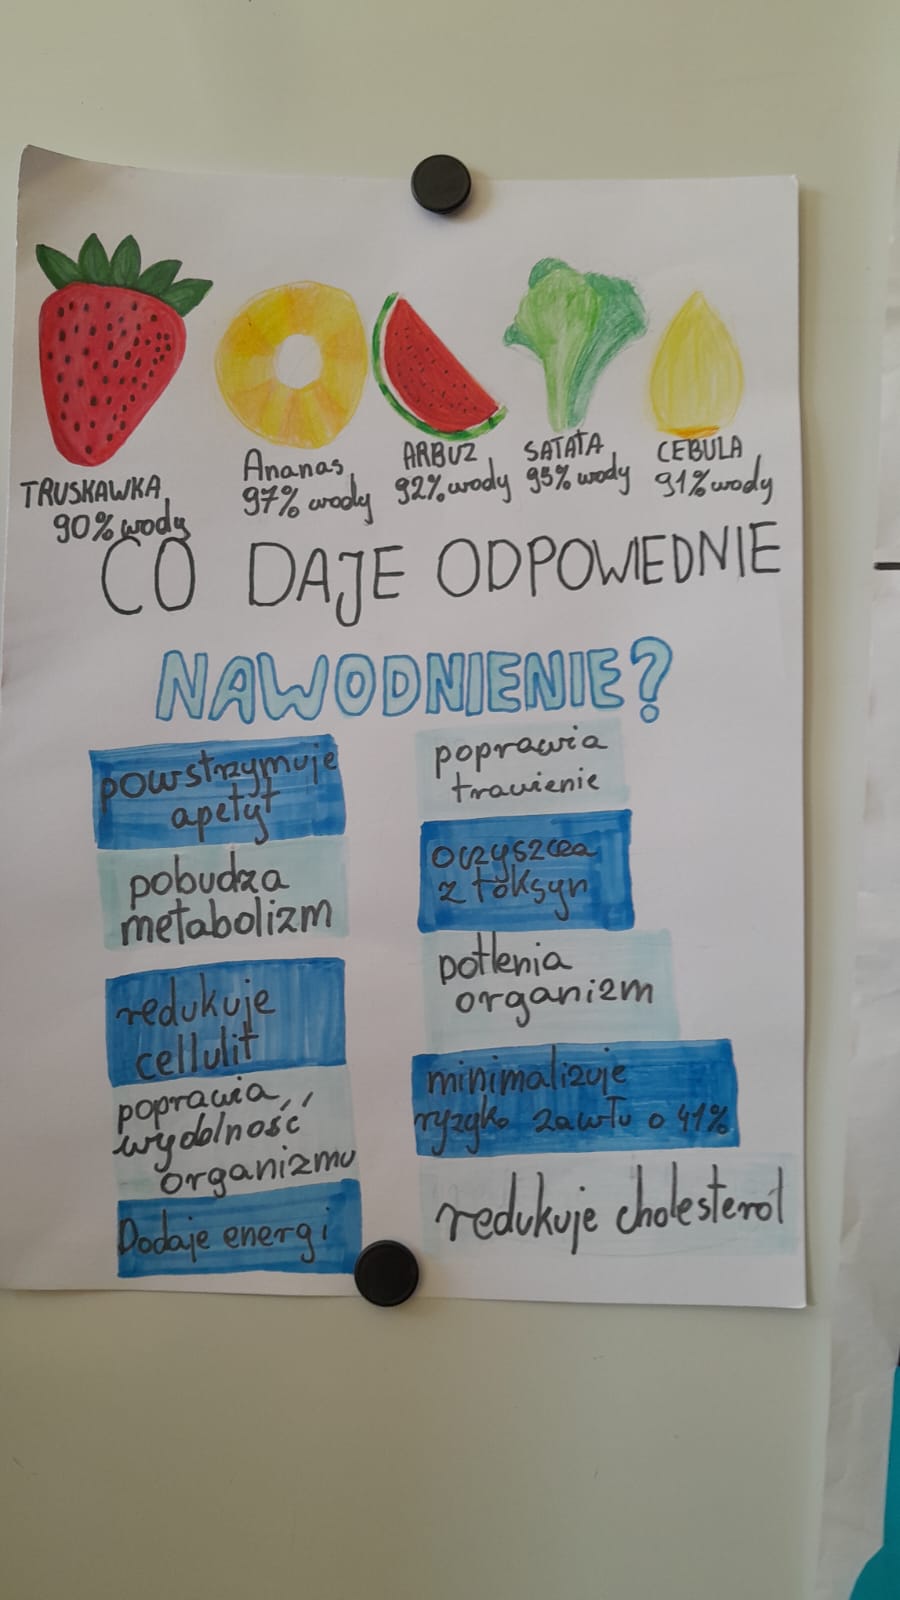 TRUSKAWKA
90% wody
Ananas
97% wody
ARBUZ
92% wody
SATATA
95% wody
CEBULA
91% wody
CO DAJE ODPOWIEDNIE
NAWODNIENIE?
powstrzymuje
apetyt
pobudza
metabolizm
redukuje
cellulit
poprawia
wydolność
organizmu
Dodaje energi
poprawia
trawienie
oczyszcza
z toksyn
dotlenia
organizm
minimalizuje
ryzyko zawału o 41%
redukuje cholesteról